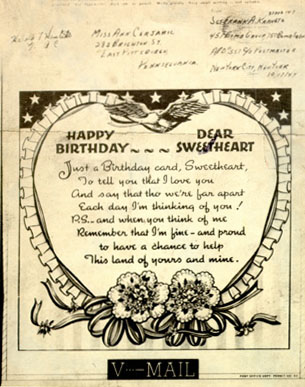 Miss Ann Cerjanic
288 Brighton St.
East Pittsburgh
Pennsylvania
Sgt Frank A.
457 Bomb Group 751 Bomb
APO 557 % Postmaster
New York City, New York
HAPPY BIRTHDAY ~ ~ ~ DEAR SWEETHEART
Just a Birthday card, Sweetheart,
To tell you that I love you
And say that tho we're far apart
Each day I'm thinking of you!
P.S.- and when you think of me
Remember that I'm fine - and proud
to have a chance to help
This land of yours and mine.
V···—MAIL